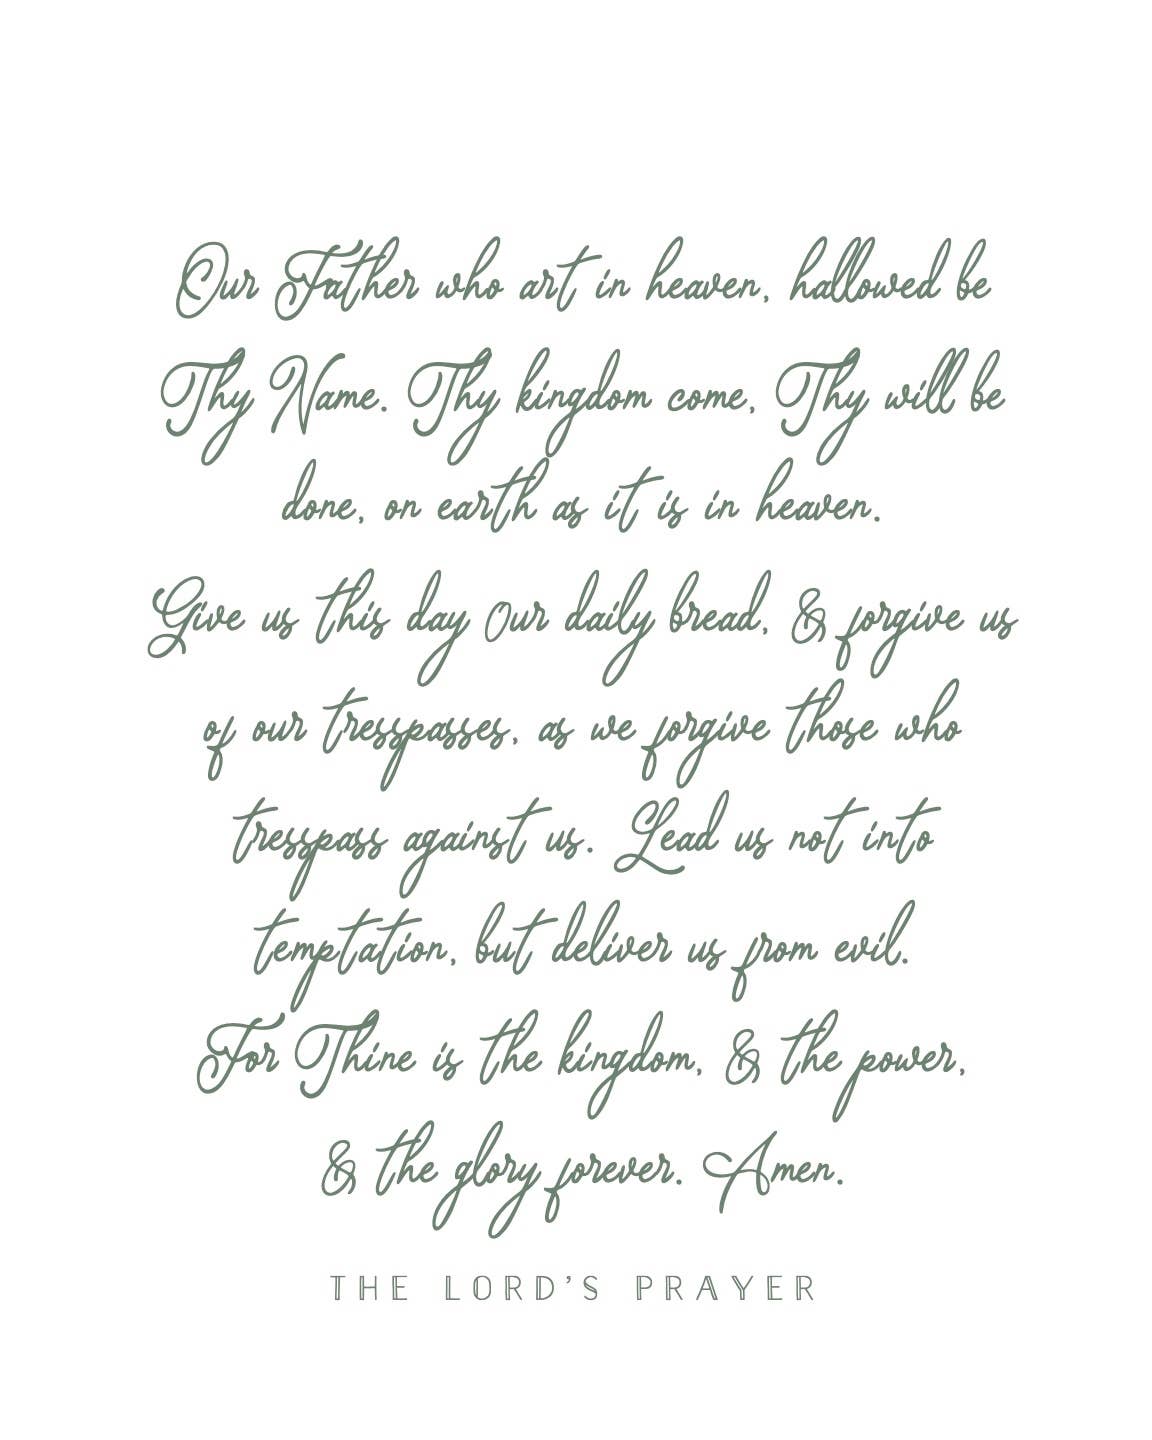 Our Father who art in heaven, hallowed be
Thy Name. Thy kingdom come, Thy will be
done, on earth as it is in heaven.
Give us this day our daily bread, & forgive us
of our tresspasses, as we forgive those who
tresspass against us. Lead us not into
temptation, but deliver us from evil.
For Thine is the kingdom, & the power,
& the glory forever. Amen.
THE LORD'S PRAYER